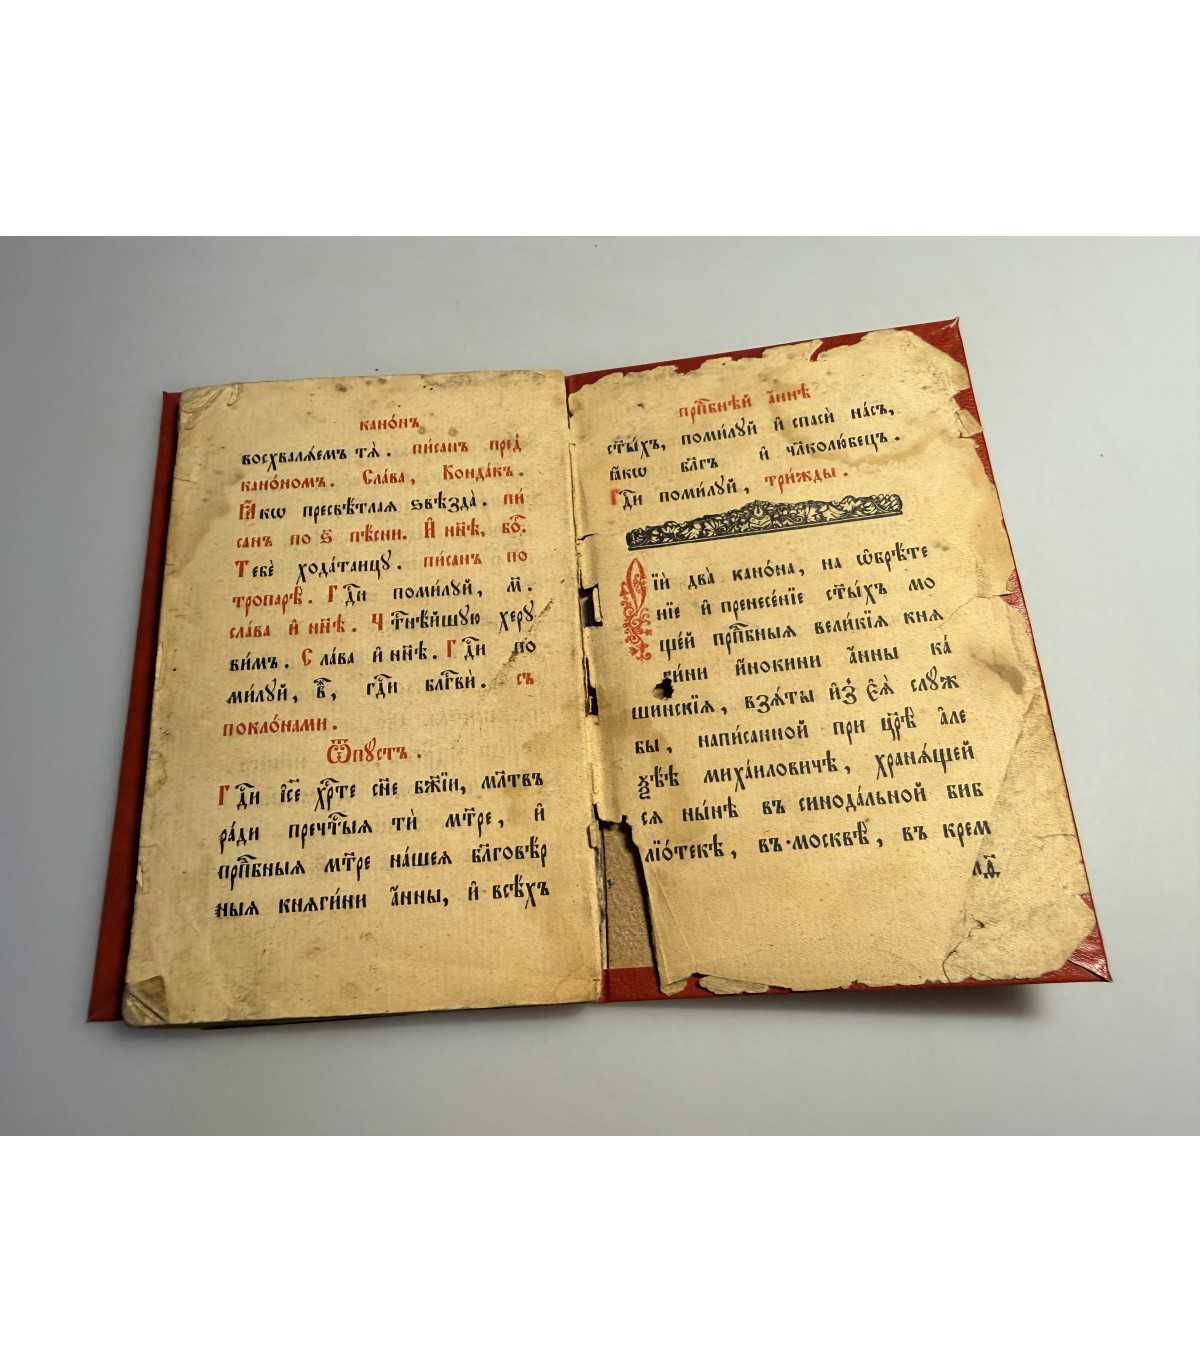 кано́нъ
восхваля́емъ тѧ̀. пи́санъ пред̾
кано́номъ. Сла́ва, Конда́къ.
Ꙗ҆́кѡ пресвѣ́тлая ѕвѣзда̀. пи́
санъ по ѕ҃ пѣ́сни. И҆ ны́нѣ, бо҃.
Тебѐ хода́таицу. пи́санъ по
тропарѣ̀. Гдⷭ҇и поми́луй, м҃.
сла́ва и҆ ны҃нѣ. Чтⷭ҇нѣ́йшую херу
ви́мъ. Сла́ва и҆ нн҃ѣ. Гдⷭ҇и по
ми́луй, в҃, гдⷭ҇и блгⷭ҇вѝ. съ
покло́нами.
Ѿпустъ.
Гдⷭ҇и і҆с҃е хрⷭ҇те сн҃е бж҃їи, мл҃твъ
ра́ди пречтⷭ҇ыя тѝ мт҃ре, и҆
прпⷣбныя мт҃ре на́шея бл҃говѣ́р
ныя княги́ни а҆́нны, и҆ всѣ́хъ
прпⷣбнѣй а҆́ннѣ
ст҃ы́хъ, поми́луй и҆ спасѝ на́съ,
ꙗ҆́кѡ бл҃гъ и҆ чл҃колю́бецъ.
Гдⷭ҇и поми́луй, три́жды.
Сїѝ два̀ кано́на, на ѡ҆брѣ́те
нїе и҆ пренесе́нїе ст҃ы́хъ мо
ще́й прпⷣбныя вели́кїя кня
ги́ни и҆́нокини а҆́нны ка́
шинскїя, взя́ты и҆з̾ є҆ѧ̀ слу́ж
бы, напи́санной при цр҃ѣ̀ а҆ле
ѯѣ́ѣ миха́иловичѣ, храня́щей
ся ны́нѣ въ синода́льной биб
лїо́текѣ, въ москвѣ̀, въ крем
лѣ̀.